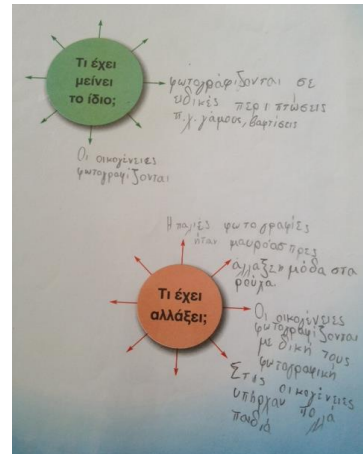 Τι έχει
μείνει
το ίδιο;
φωτογράφιδονται σε
ειδικές περιπτώσεις
π.χ. γάμους, βαφτίσεις
Οι οικογένειες
φωτογραφίζονται
Η παλιές φωτογραφίες
ήταν μαυρόασπρες
άλλαξε η μόδα στα
ρούχα
Τι έχει
αλλάξει;
Οι οικογένειες
φωτογραφίζονται
με δική τους
φωτογραφική
Στις οικογένειες
υπήρχαν πολλά
παιδιά